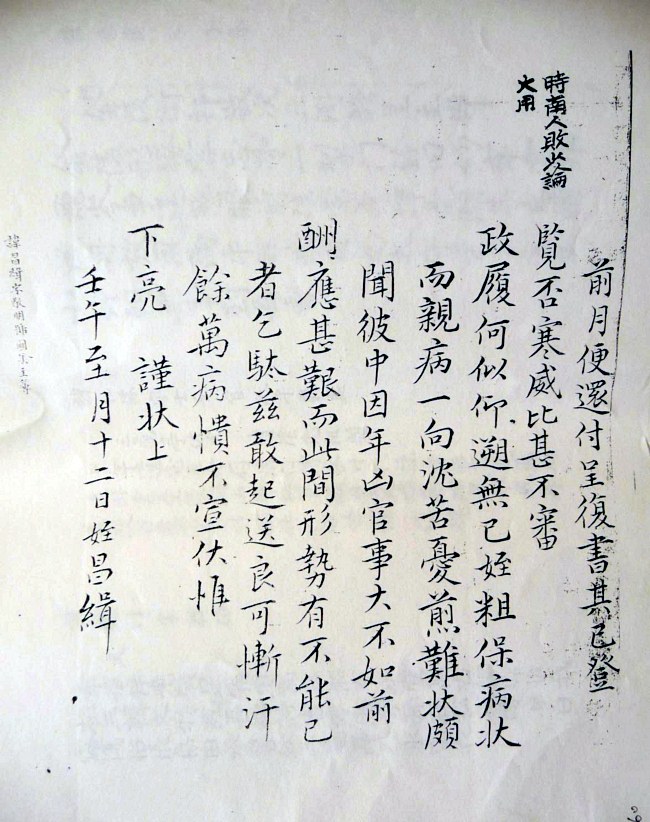 時南人敗少論
大用
前月便還付呈復書其已登
覽否寒威比甚不審
政履何似仰遡無已姪粗保病状
而親病一向沈苦憂煎難状頗
聞彼中因年凶官事大不如前
酬應甚艱而此間形勢有不能已
者乞駄茲敢起送良可慚汗
餘萬病憒不宣伏惟
下亮 謹状上
壬午至月十二日姪昌緝
諱昌緝字敬明